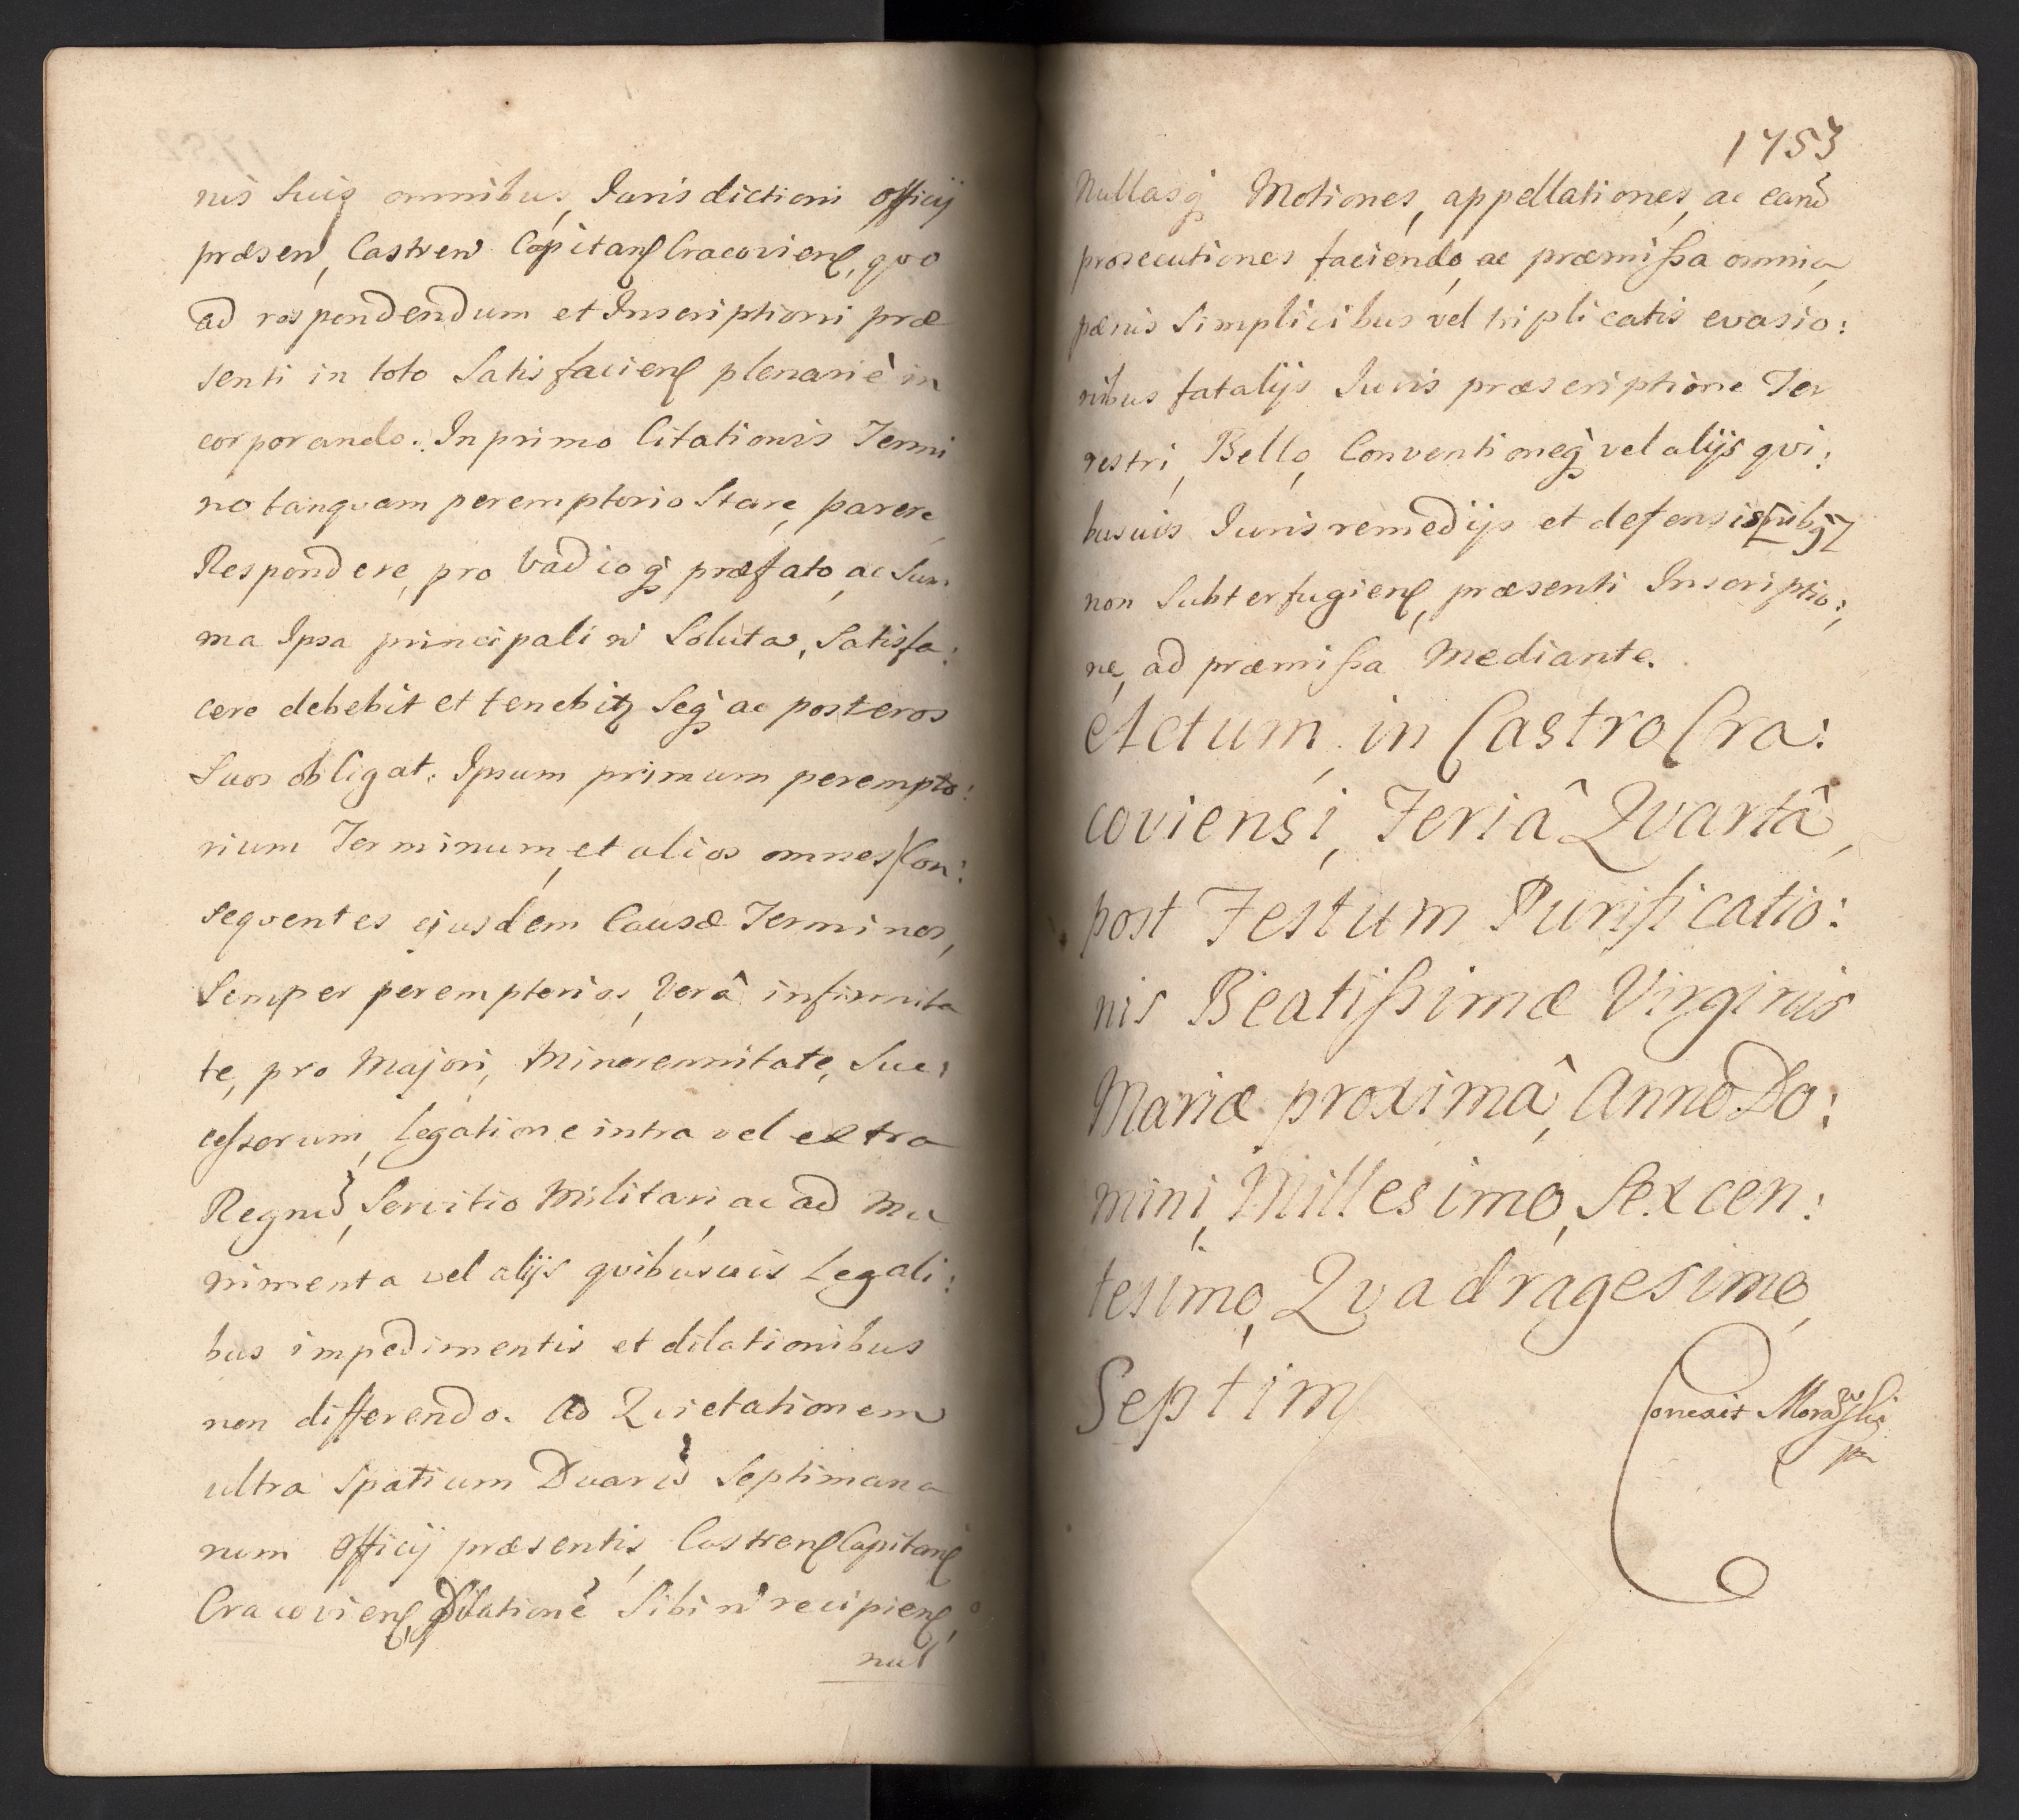 nis suis omnibus, Jurisdictioni officij
præsen, Castren Capitan Cracovien, qvo
ad respondendum et Inscriptioni præ
senti in toto Satisfacien plenariè in
corporando. In primo Citationis Termi
no tanqvam peremptorio Stare, parere,
Respondere, pro Vadioq præfato, ac Sum
ma Ipsa principali n Soluta, Satisfa:
cere debebit et tenebitr Seq ac posteros
Suos obligat. Ipsum primum perempto:
rium Terminum, et alios omnes Con:
seqventes ejusdem Causæ Terminos,
Semper peremptorios, Verâ infirmita
te, pro Majori, Minorennitate, Suc:
cessorum, Legatione intra vel extra
Regnu, Servitio Militari, ac ad Mu
nimenta vel alijs qvibusuis Legali:
bus impedimentis et dilationibus
non differendo. Ad Qvietationem
ultra Spatium Duaru Septimana
num officij præsentis, Castren Capitan
Cracovien, Dilatione Sibi n recipien,
nul
1753
Nullasq Motiones, appellationes, ac eand
prosecutiones faciendo, ac præmissa omnia,
pænis Simplicibus vel triplicatis evasio:
nibus fatalijs Juris præscriptione Ter
restri, Bello, Conventioneq vel alijs qvi:
busuis Juris remedijs et defensi[nibq]
non Subterfugien, præsenti Inscriptio:
ne, ad præmissa Mediante.
Actum in Castro Cra:
coviensi, Feriâ Qvartâ,
post Festum Purificatio:
nis Beatissimæ Virginis
Mariæ proximâ, Anno Do:
mini, Millesimo, Sexcen:
tesimo, Qvadragesimo,
Septim